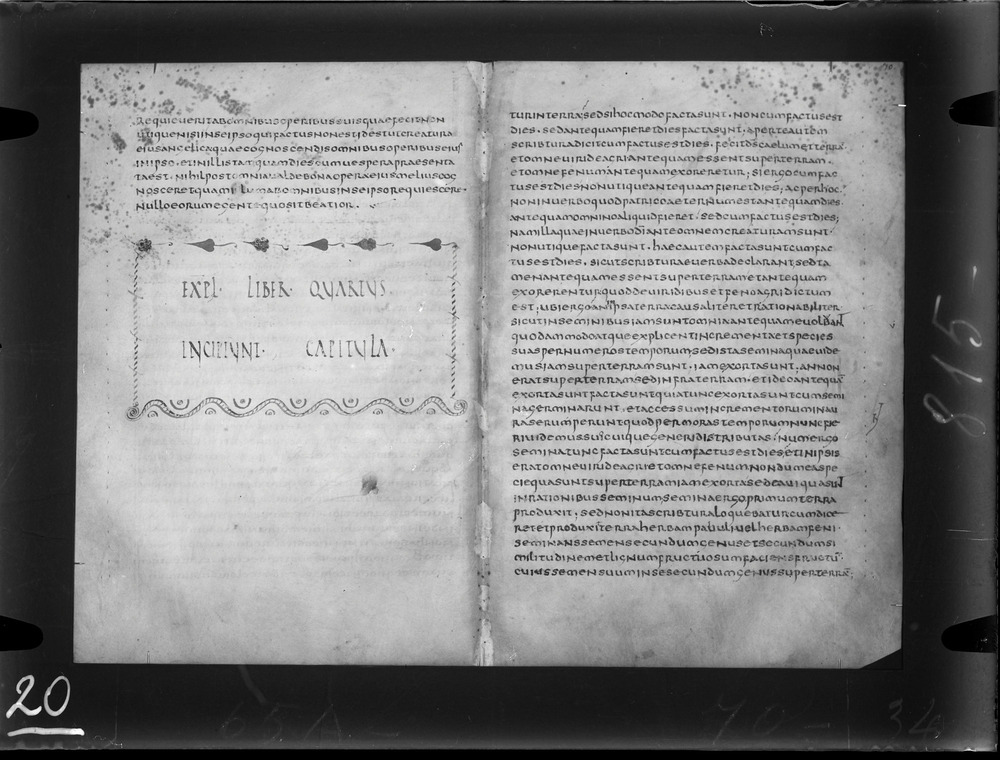 REQUIEUERITABOMNIBUSOPERIBUSSUISQUAEFECITNON
UTIQUENISIINSEIPSOQUIFACTUSNONESTIDESTUTCREATURA
EIUSANGELICAQUAECOGNOSCENDISOMNIBUSOPERIBUSEIUS
INIPSO·ETINILLISTAMQUAMDIESCUMUESPERAPRAESENTA
TAEST·NIHILPOSTOMNIAUALDEBONAOPERAEIUSMELIUSCOG
NOSCERETQUAMILLUMABOMNIBUSINSEIPSOREQUIESCERE·
NULLOEORUMEGENTEQUOSITBEATIOR·
EXPL· LIBER· QUARTUS·
INCIPIUNT· CAPITULA·
TURINTERRASEDSIHOCMODOFACTASUNT·NONCUMFACTUSEST
DIES·SEDANTEQUAMFIERETDIESFACTASUNT·APERTEAUTEM
SCRIBTURADICITCUMFACTUSESTDIES·FECITDSCAELUMETTERRA
ETOMNEUIRIDEAGRIANTEQUAMESSENTSUPERTERRAM·
ETOMNEFENUMANTEQUAMEXORERETUR;SIERGOCUMFAC
TUSESTDIESNONUTIQUEANTEQUAMFIERETDIES;ACPERHOC·
NONINUERBOQUODPATRICOAETERNUMESTANTEQUAMDIES·
ANTEQUAMOMNINOALIQUIDFIERET·SEDCUMFACTUSESTDIES;
NAMILLAQUAEINUERBODIANTEOMNEMCREATURAMSUNT·
NONUTIQUEFACTASUNT·HAECAUTEMFACTASUNTCUMFAC
TUSESTDIES·SICUTSCRIBTURAEUERBADECLARANT;SEDTA
MENANTEQUAMESSENTSUPERTERRAMETANTEQUAM
EXORERENTURQUODDEUIRIDIBUSETFENOAGRIDICTUM
EST;UBIERGOANIPSATERRACAUSALITERETRATIONABILITER·
SICUTINSEMINIBUSIAMSUNTOMNIAANTEQUAMEUOLUANT
QUODAMMODOATQUEEXPLICENTINCREMENTAETSPECIES
SUASPERNUMEROSTEMPORUMSEDISTASEMINAQUAEUIDE
MUSIAMSUPERTERRAMSUNT·IAMEXORTASUNT·ANNON
ERATSUPERTERRAMSEDINFRATERRAM·ETIDEOANTEQUA
EXORTASUNTFACTASUNTQUIATUNCEXORTASUNTCUMSEMI
NAGERMINARUNT·ETACCESSUMINCREMENTORUMINAU
RASERUMPERUNTQUODPERMORASTEMPORUMNUNCFIE
RIUIDEMUSSUICUIQUEGENERIDISTRIBUTAS;NUMERGO
SEMINATUNCFACTASUNTCUMFACTUSESTDIESETINIPSIS
ERATOMNEUIRIDEAGRIETOMNEFENUMNONDUMEASPE
CIEQUASUNTSUPERTERRAMIAMEXORTASEDEAUIQUASUNT
INRATIONIBUSSEMINUMSEMINAERGOPRIMUMTERRA
PRODUXIT;SEDNONITASCRIBTURALOQUEBATURCUMDICE
RETETPRODUXITTERRAHERBAMPABULIUELHERBAMFENI·
SEMINANSSEMENSECUNDUMGENUSETSECUNDUMSI
MILITUDINEMETLIGNUMFRUCTUOSUMFACIENSFRUCTU
CUIUSSEMENSUUMINSESECUNDUMGENUSSUPERTERRA;
20
815-